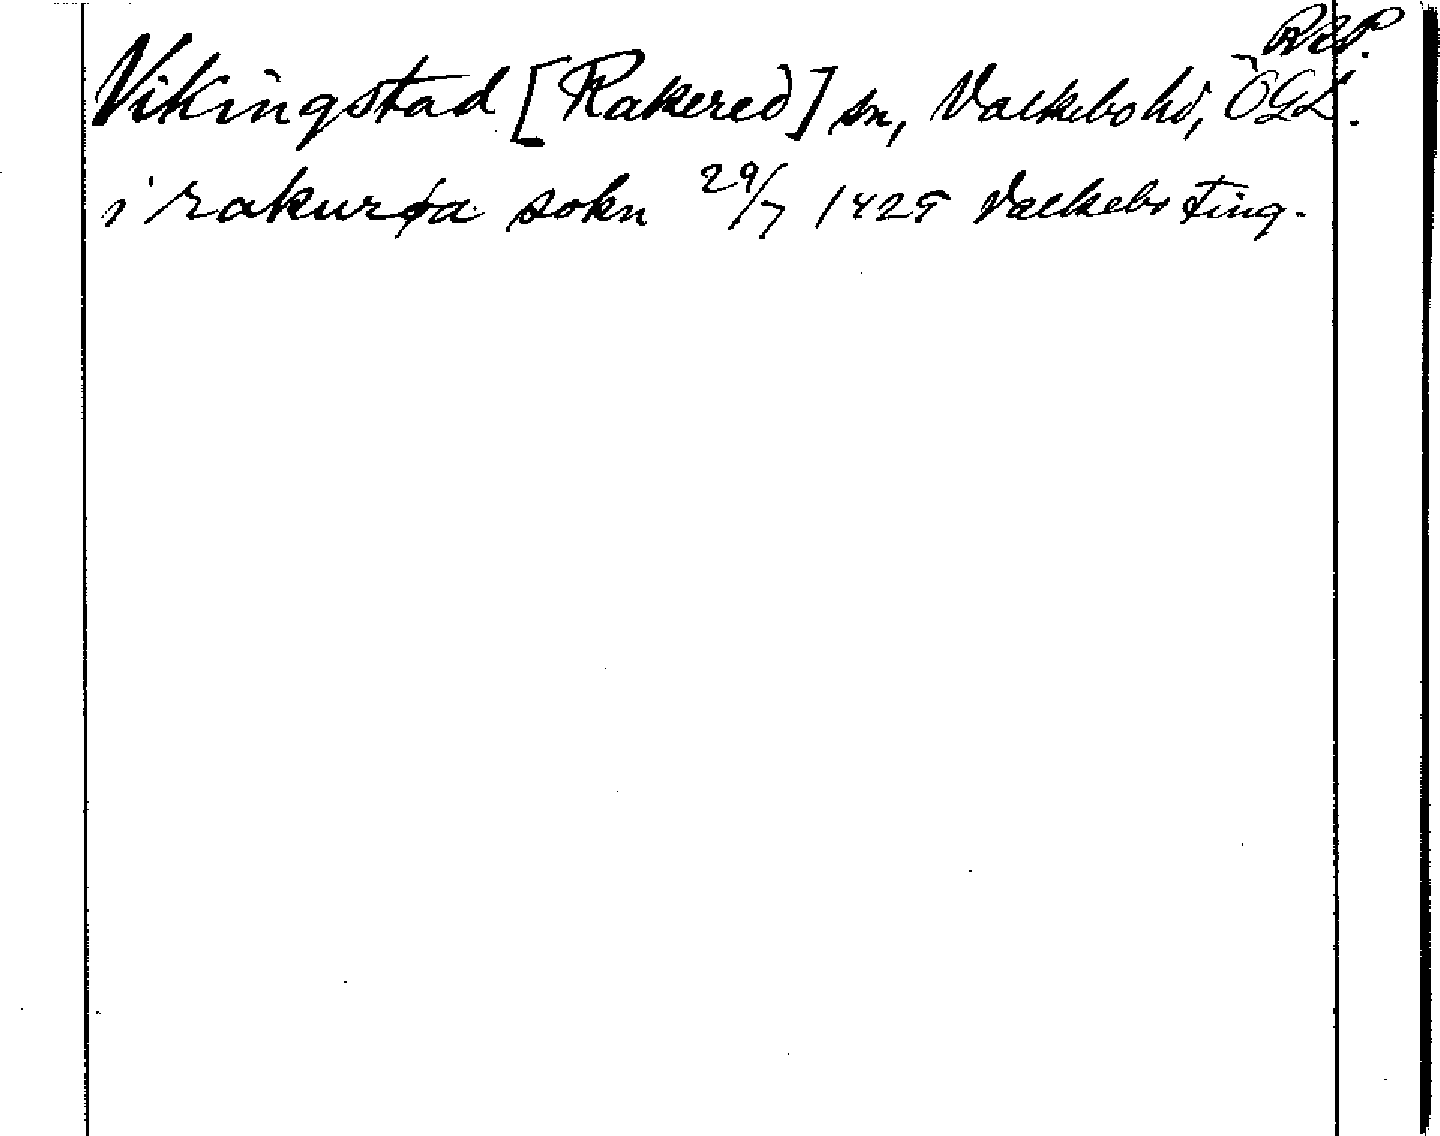 RAP.
Vikingstad [Rakered] sn, Valkebo hd, ÖGL.
i rakurøa sokn 29/7 1425 Valkebo ting.